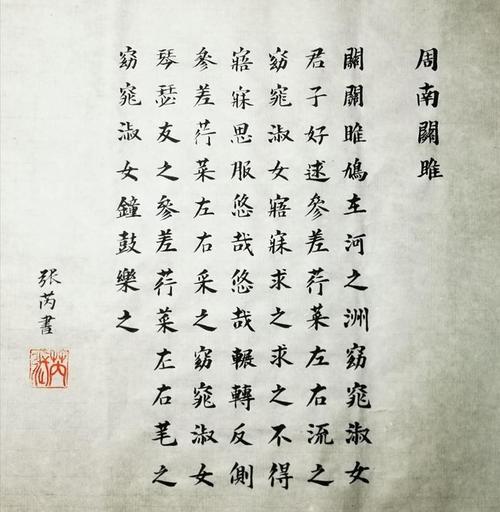 周南關雎
關關雎鳩在河之洲窈窕淑女
君子好逑參差荇菜左右流之
窈窕淑女寤寐求之求之不得
寤寐思服悠哉悠哉輾轉反側
參差荇菜左右采之窈窕淑女
琴瑟友之參差荇菜左右芼之
窈窕淑女鐘鼓樂之
张芮書